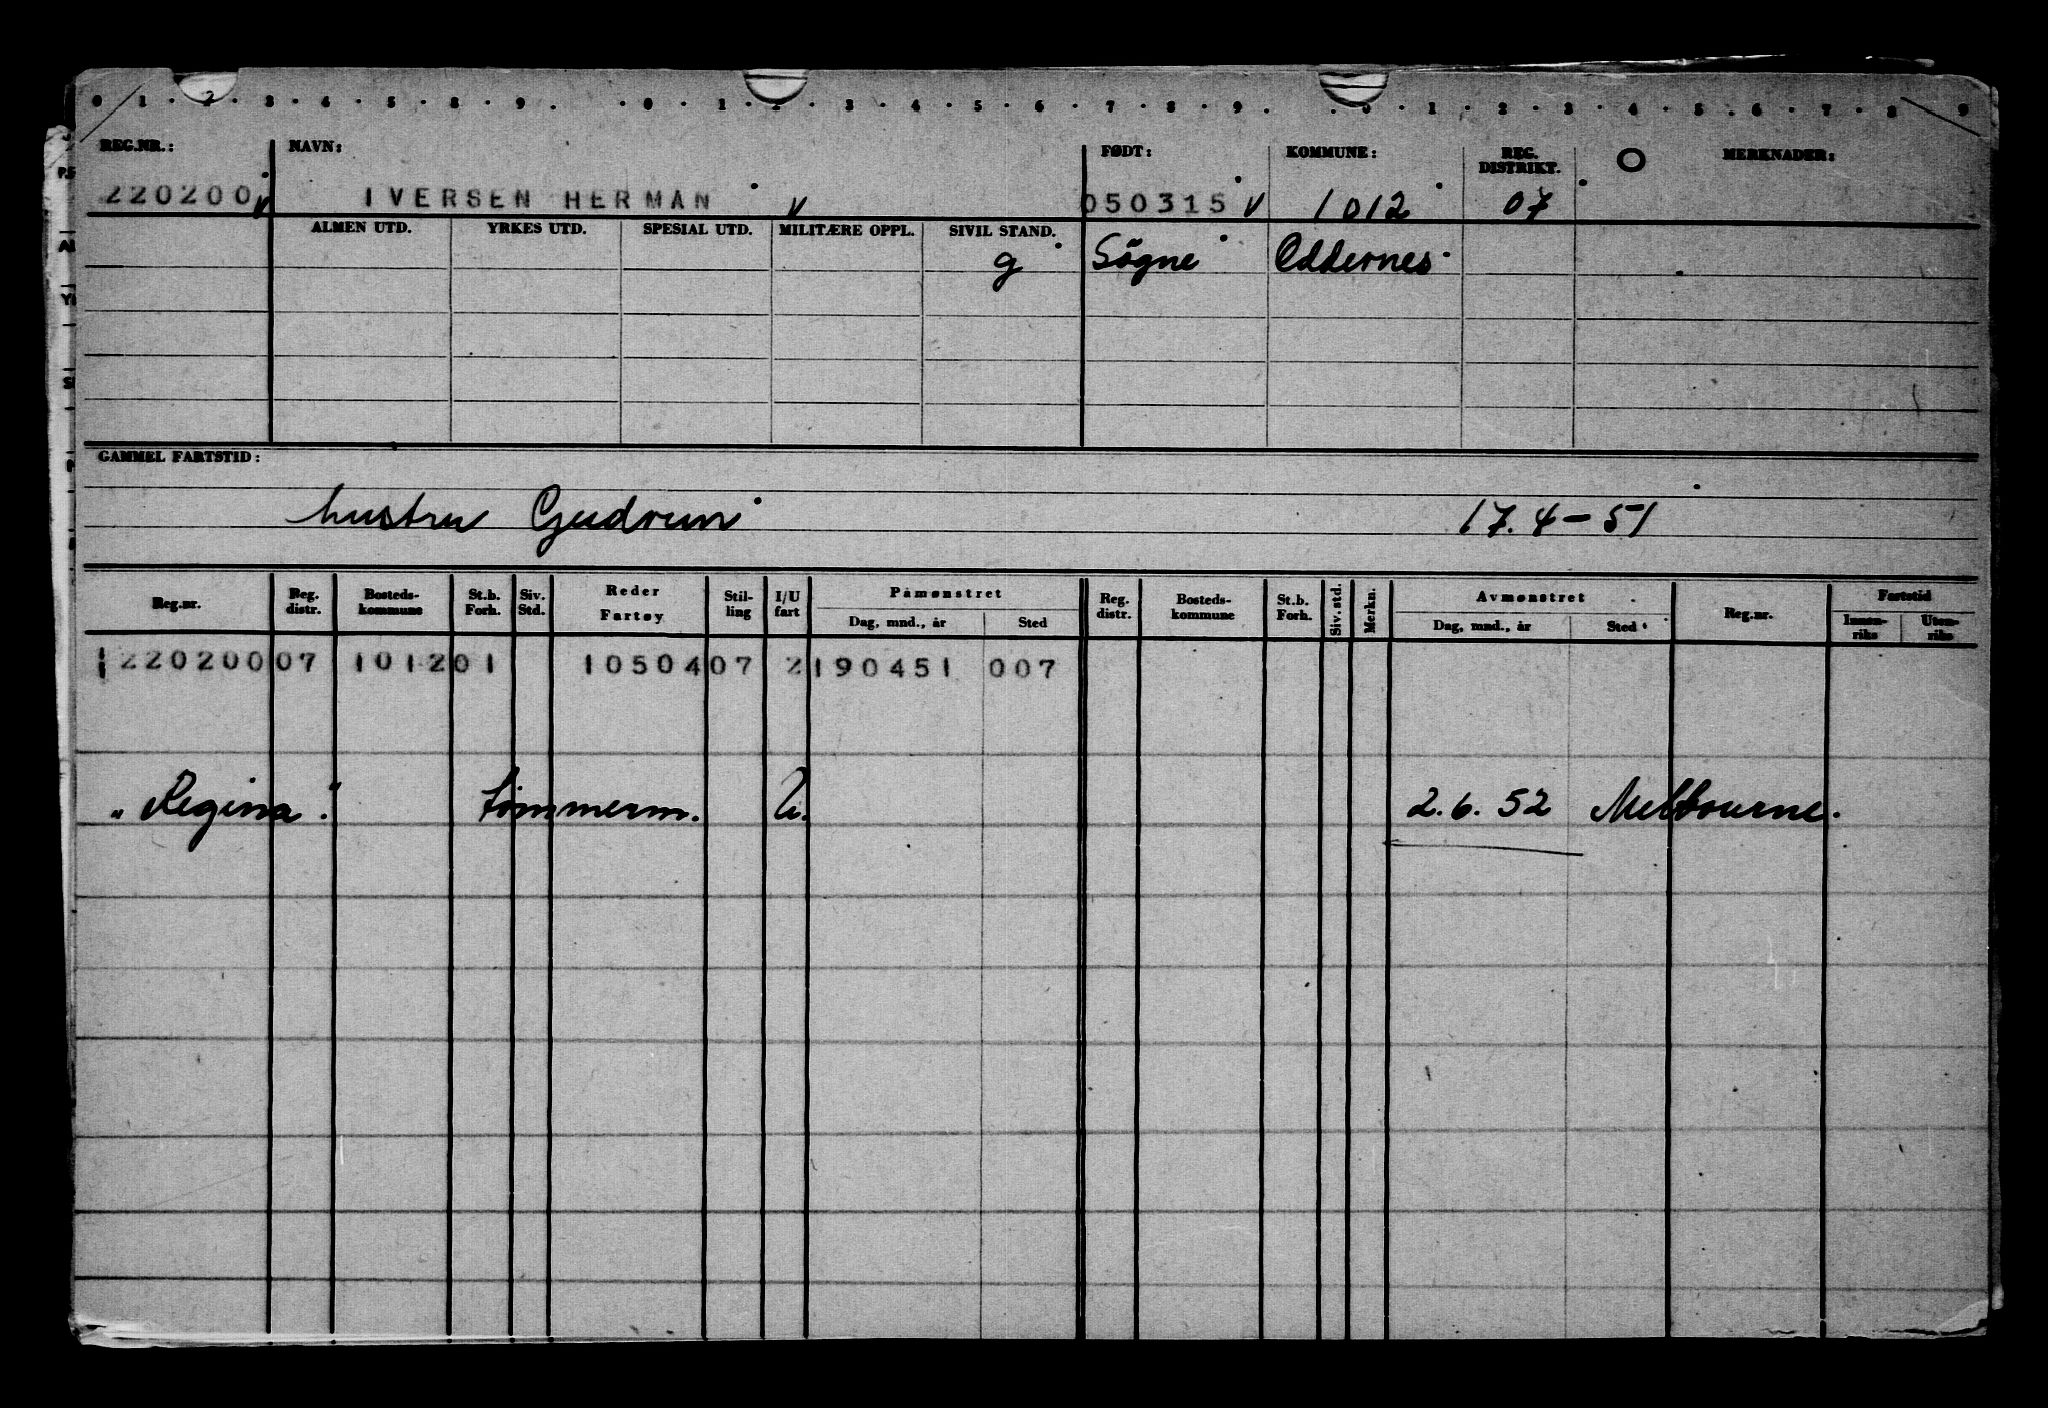 0 1 2 3 4 5 8 9 0 1 2 3 4 5 6 7 8 9 0 1 2 3 4 5 6 7 8 9
REG.NR.: NAVN: FØDT: KOMMUNE: REG. DISTRIKT. MERKNADER:
220200 v IVERSEN HERMAN v 050315 v 1012 07
ALMEN UTD. YRKES UTD. SPESIAL UTD. MILITÆRE OPPL. SIVIL STAND.
g Sögne Oddernes
GAMMEL FARTSTID:
hustru Gudrun 17.4-51
Reg.nr. Reg. distr. Bosteds-kommune St.b. Forh. Siv. Std. Reder Fartøy Stil-ling I/U fart Påmønstret Dag, mnd., år Sted Reg. distr. Bosteds-kommune St.b. Forh. Siv. std. Merkn. Avmønstret Dag, mnd., år Sted Reg.nr. Fartstid Innen-riks Uten-riks
220200 07 1012 01 10504 07 2 190451 007
"Regina." tømmerm. U. 2.6.52 Melbourne.